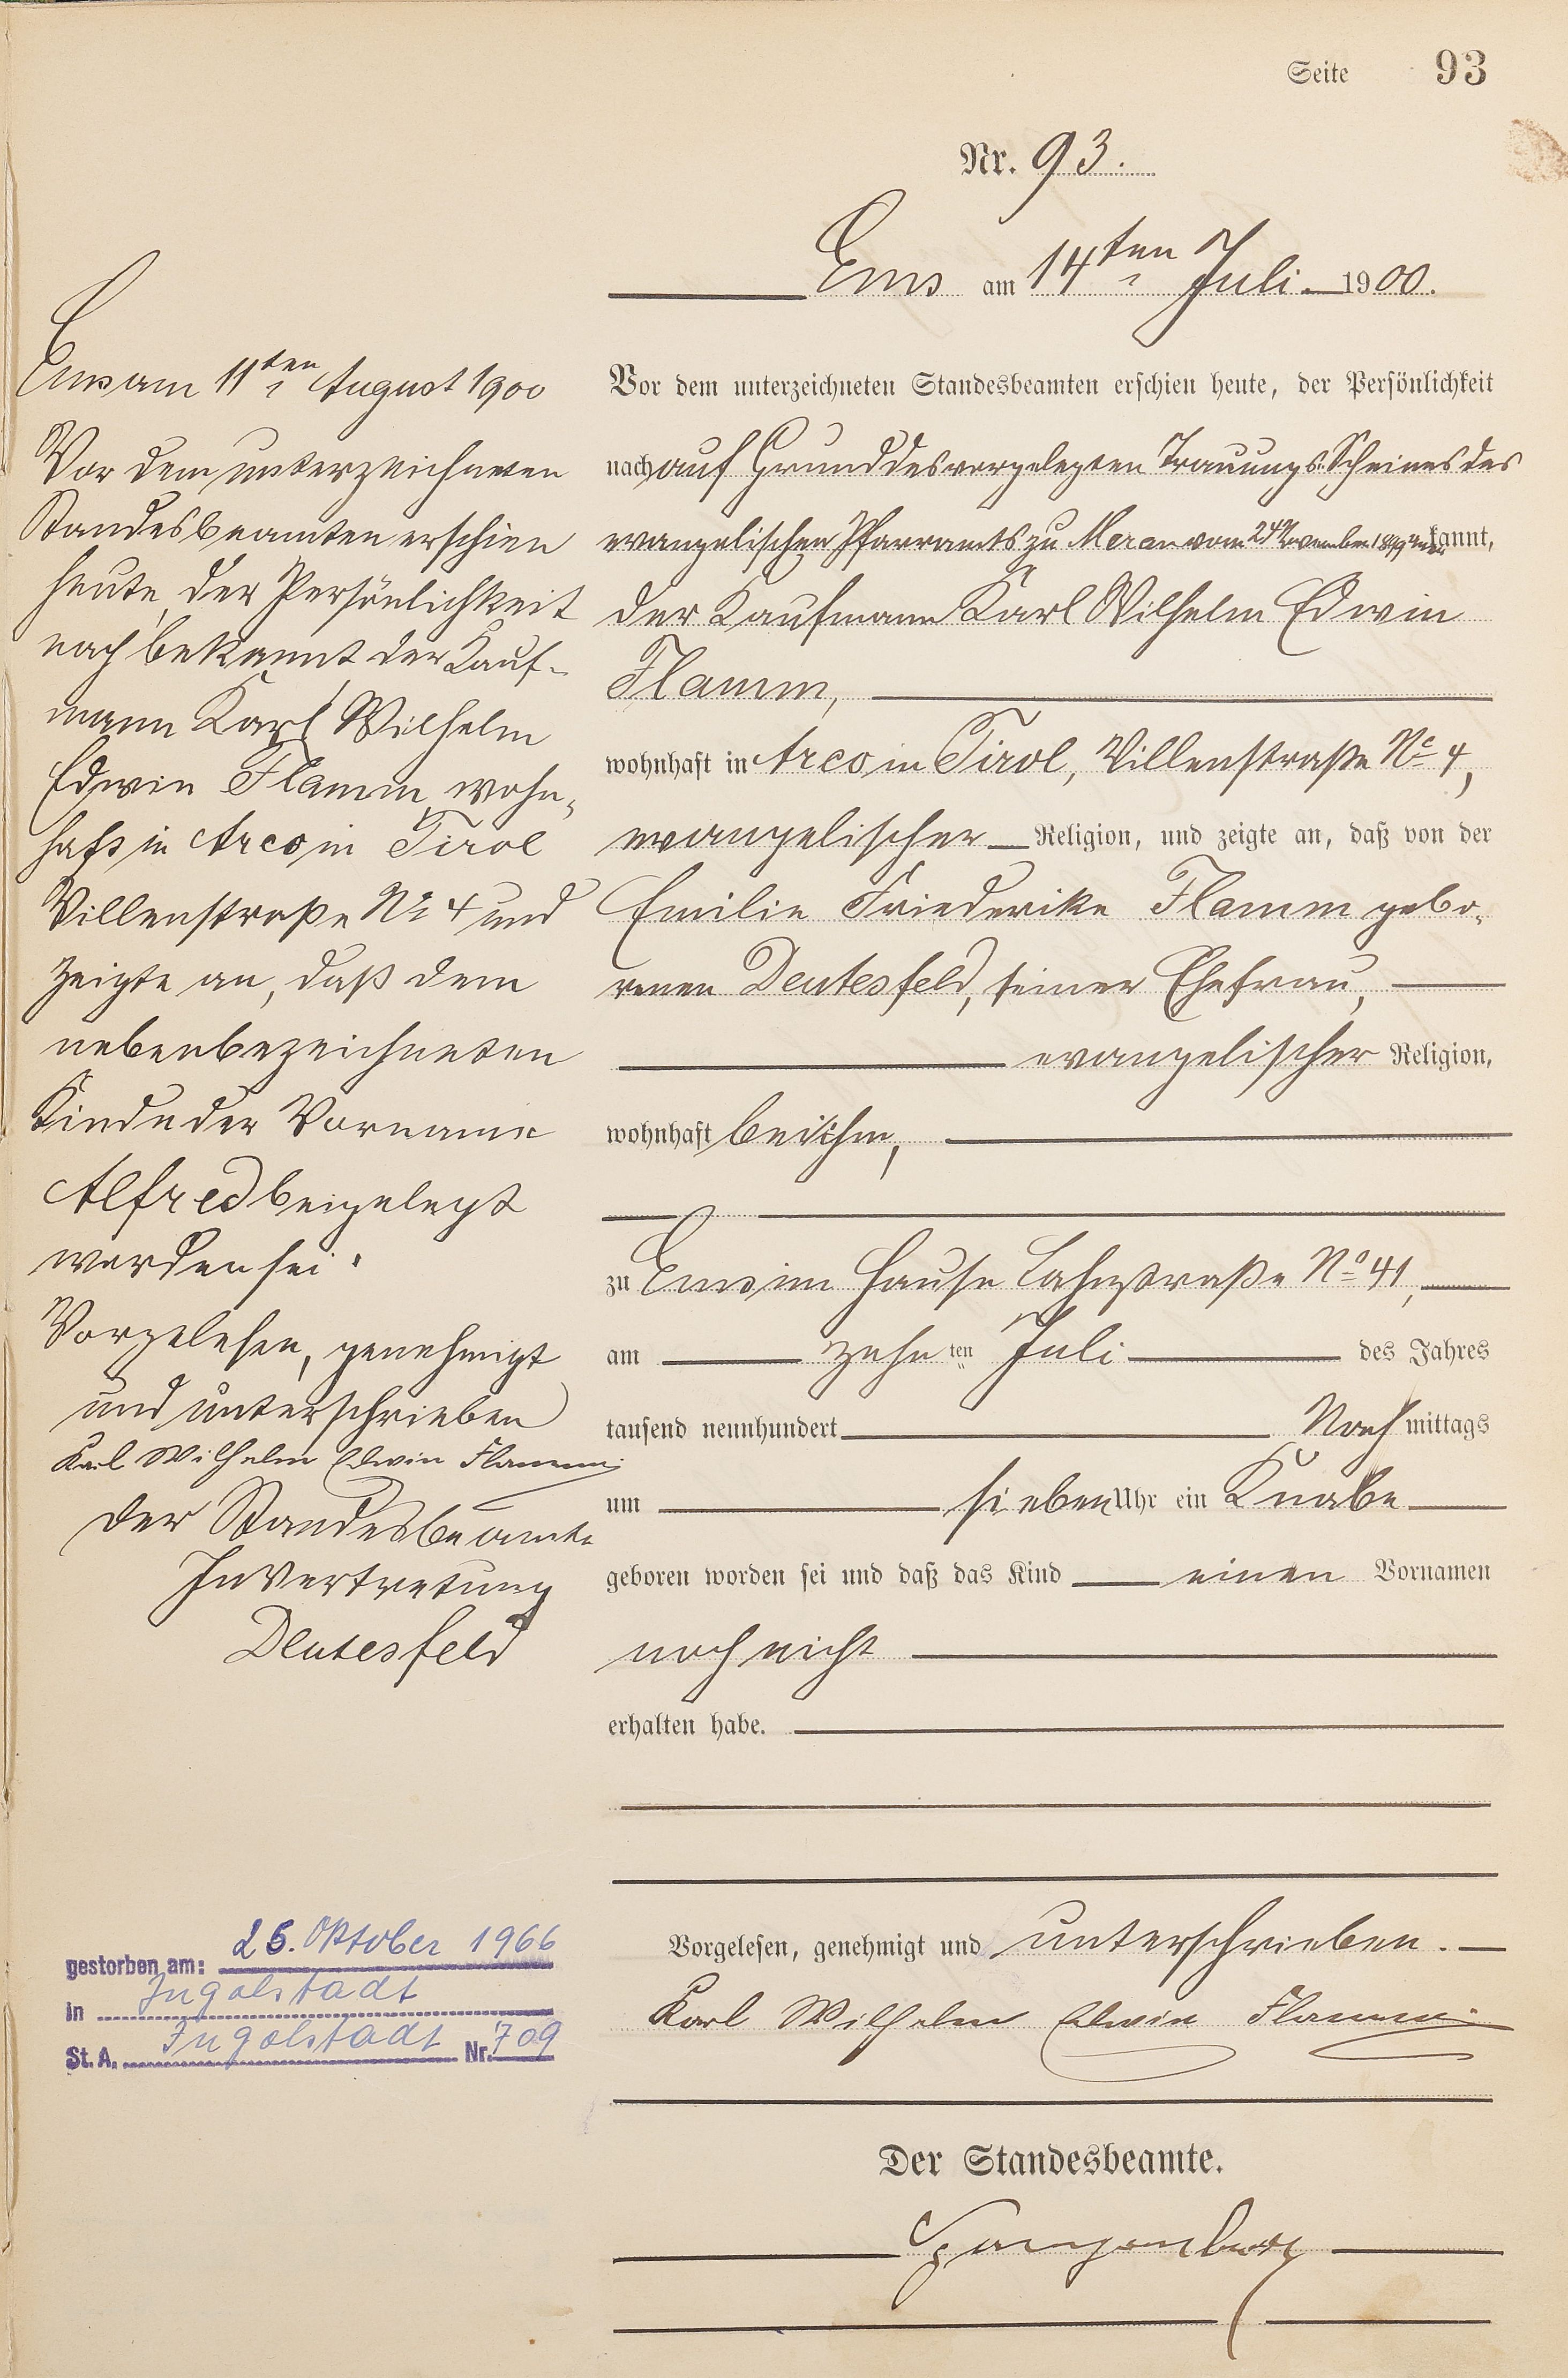 Seite 93
Nr. 93.
Ems am 14ten Juli 1900.
Vor dem unterzeichneten Standesbeamten erschien heute, der Persönlichkeit
nach auf Grund des vorgelegten Trauungs-Scheines des
evangelischen Pfarramts zu Meran vom 24 November kannt,
der Kaufmann Karl Wilhelm Edwin
Flamm,
wohnhaft in Arco in Tirol, Villenstraße No 4,
evangelischer Religion, und zeigte an, daß von der
Emilie Friederike Flamm gebo-
renen Deutesfeld, seiner Ehefrau,
evangelischer Religion,
wohnhaft bei ihm,
zu Ems im Hause Lahnstraße No 41,
am zehnten Juli des Jahres
tausend neunhundert Nachmittags
um sieben Uhr ein Knabe
geboren worden sei und daß das Kind einen Vornamen
noch nicht
erhalten habe.
Vorgelesen, genehmigt und unterschrieben.
Karl Wilhelm Edwin Flamm
Der Standesbeamte.
Ems am 11ten August 1900
Vor dem unterzeichneten
Standesbeamten erschien
heute, der Persönlichkeit
nach bekannt der Kauf-
mann Karl Wilhelm
Edwin Flamm, wohn-
haft in Arco in Tirol
Villenstraße No 4 und
zeigte an, daß dem
nebenbezeichneten
Kinde der Vorname
Alfred beigelegt
worden sei.
Vorgelesen, genehmigt
und unterschrieben
Karl Wilhelm Edwin Flamm
Der Standesbeamte
In Vertretung
Deutesfeld
gestorben am: Oktober 1966
in Ingolstadt
St. A. Ingolstadt Nr. 709